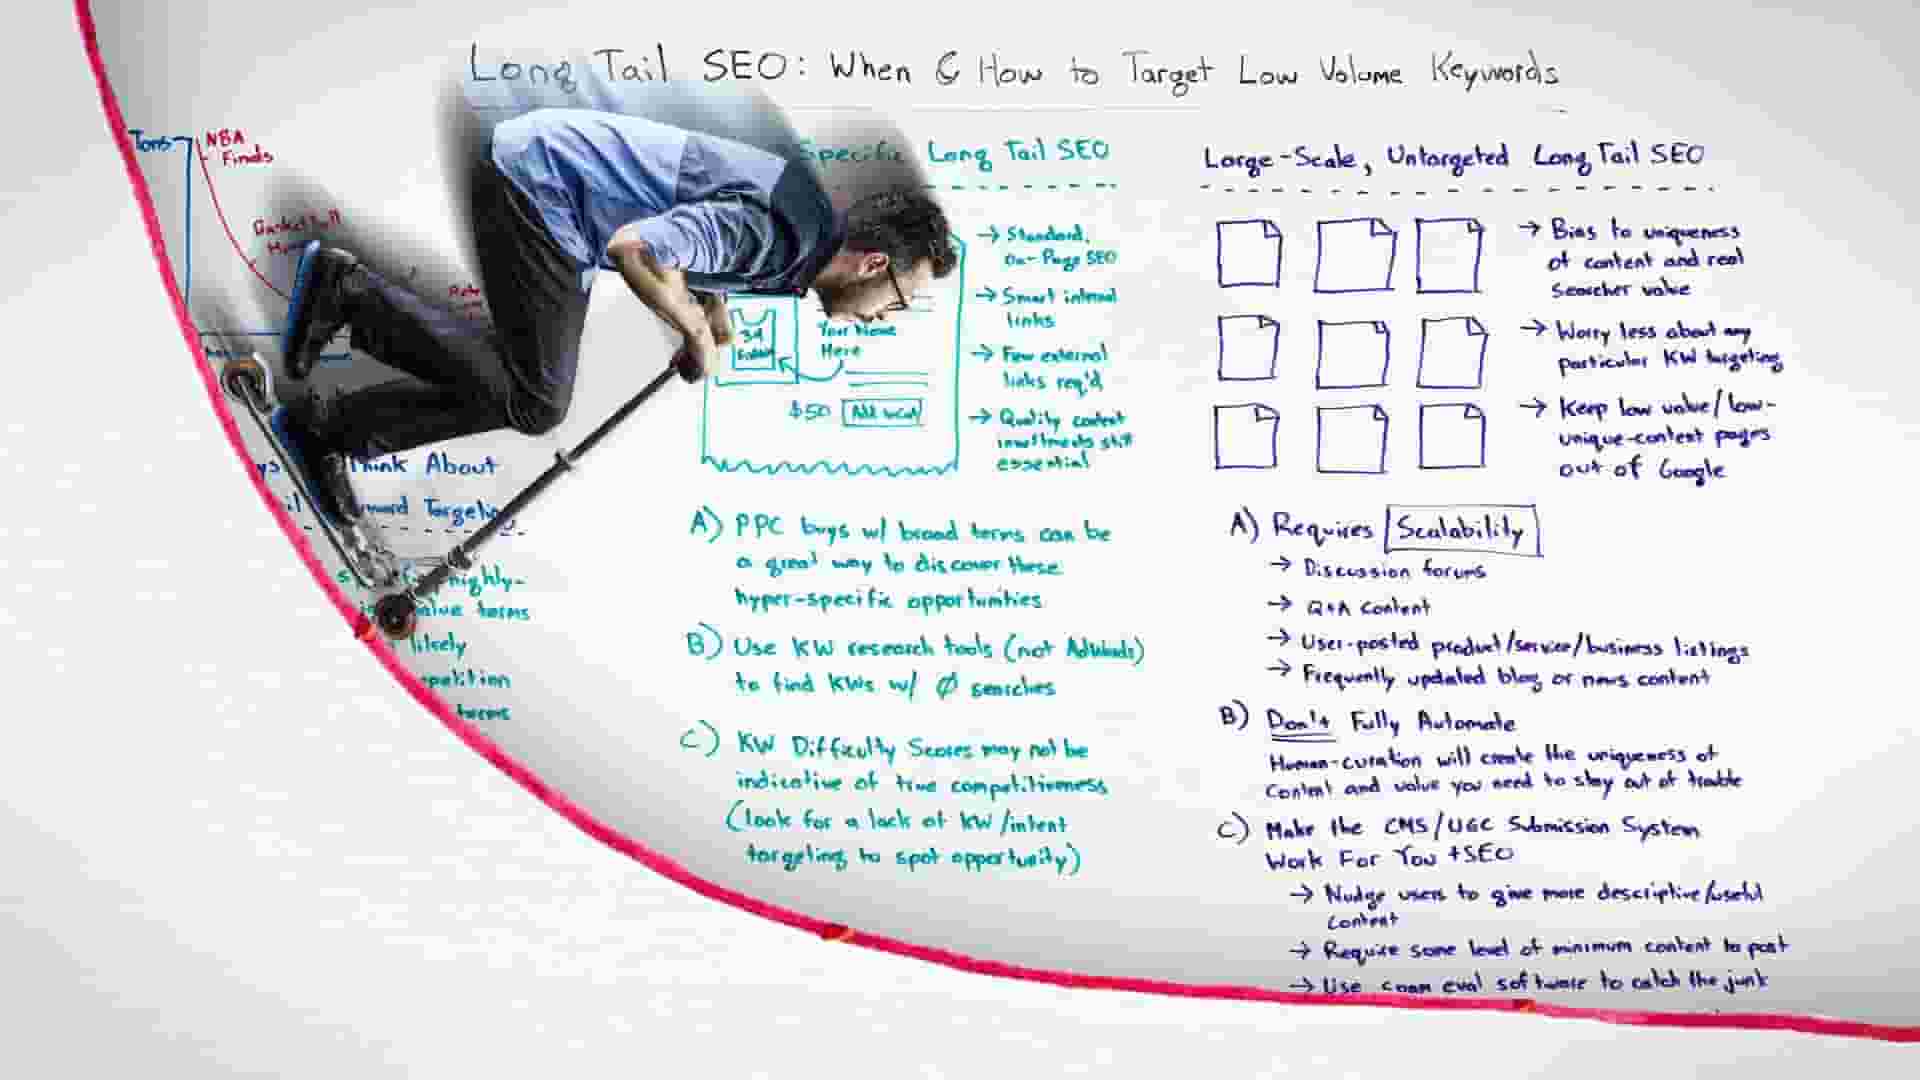 Long Tail SEO: When & How to Target Low Volume Keywords
Tons
NBA
Finals
Basketball
Think About
Targeting
highly-
value terms
likely
terms
Specific Long Tail SEO
34
Your Name
Here
$50
→ Standard,
On-Page SEO
→ Smart internal
links
→ Few external
links req'd
→ Quality content
investments still
essential
A) PPC buys w/ broad terms can be
a great way to discover these
hyper-specific opportunities
B) Use KW research tools (not AdWords)
to find KWs w/ Ø searches
C) KW Difficulty Scores may not be
indicative of true competitiveness
(look for a lack of KW/intent
targeting to spot opportunity)
Large-Scale, Untargeted Long Tail SEO
→ Bias to uniqueness
of content and real
searcher value
→ Worry less about any
particular KW targeting
→ Keep low value/low-
unique-content pages
out of Google
A) Requires Scalability
→ Discussion forums
→ Q+A Content
→ User-posted product/service/business listings
→ Frequently updated blog or news content
B) Don't Fully Automate
Human-curation will create the uniqueness of
Content and value you need to stay out of trouble
C) Make the CMS/UGC Submission System
Work For You +SEO
→ Nudge users to give more descriptive/useful
content
→ Require some level of minimum content to post
→ Use spam eval software to catch the junk